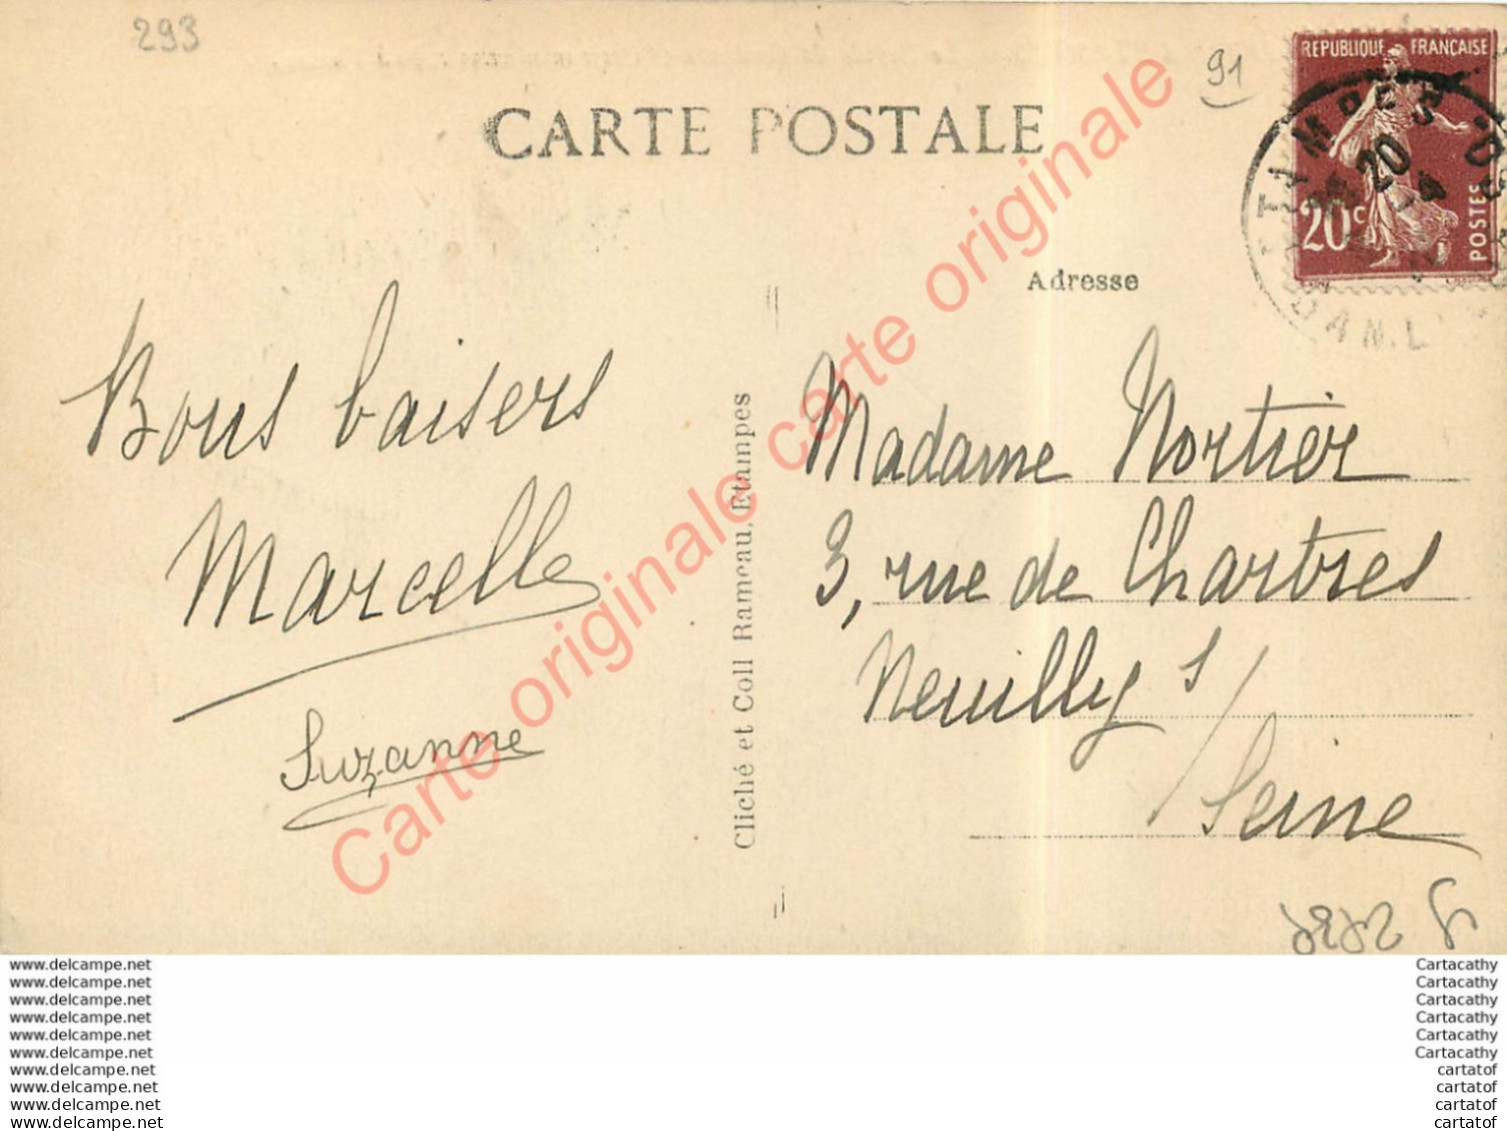 293
91
REPUBLIQUE FRANÇAISE
20c
POSTES
20
CARTE POSTALE
Adresse
Bons baisers
Marcelle
Suzanne
Cliché et Coll Rameau, Etampes
Madame Nortier
3, rue de Chartres
Neuilly s/
Seine
Carte originale carte originale Carte originale
www.delcampe.net
www.delcampe.net
www.delcampe.net
www.delcampe.net
www.delcampe.net
www.delcampe.net
www.delcampe.net
www.delcampe.net
www.delcampe.net
www.delcampe.net
Cartacathy
Cartacathy
Cartacathy
Cartacathy
Cartacathy
Cartacathy
cartatof
cartatof
cartatof
cartatof